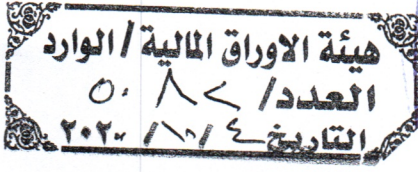 هيئة الاوراق المالية / الوارد
العدد / ٥٠٨٢
التاريخ ٤ / ١٠ / ٢٠٢٠